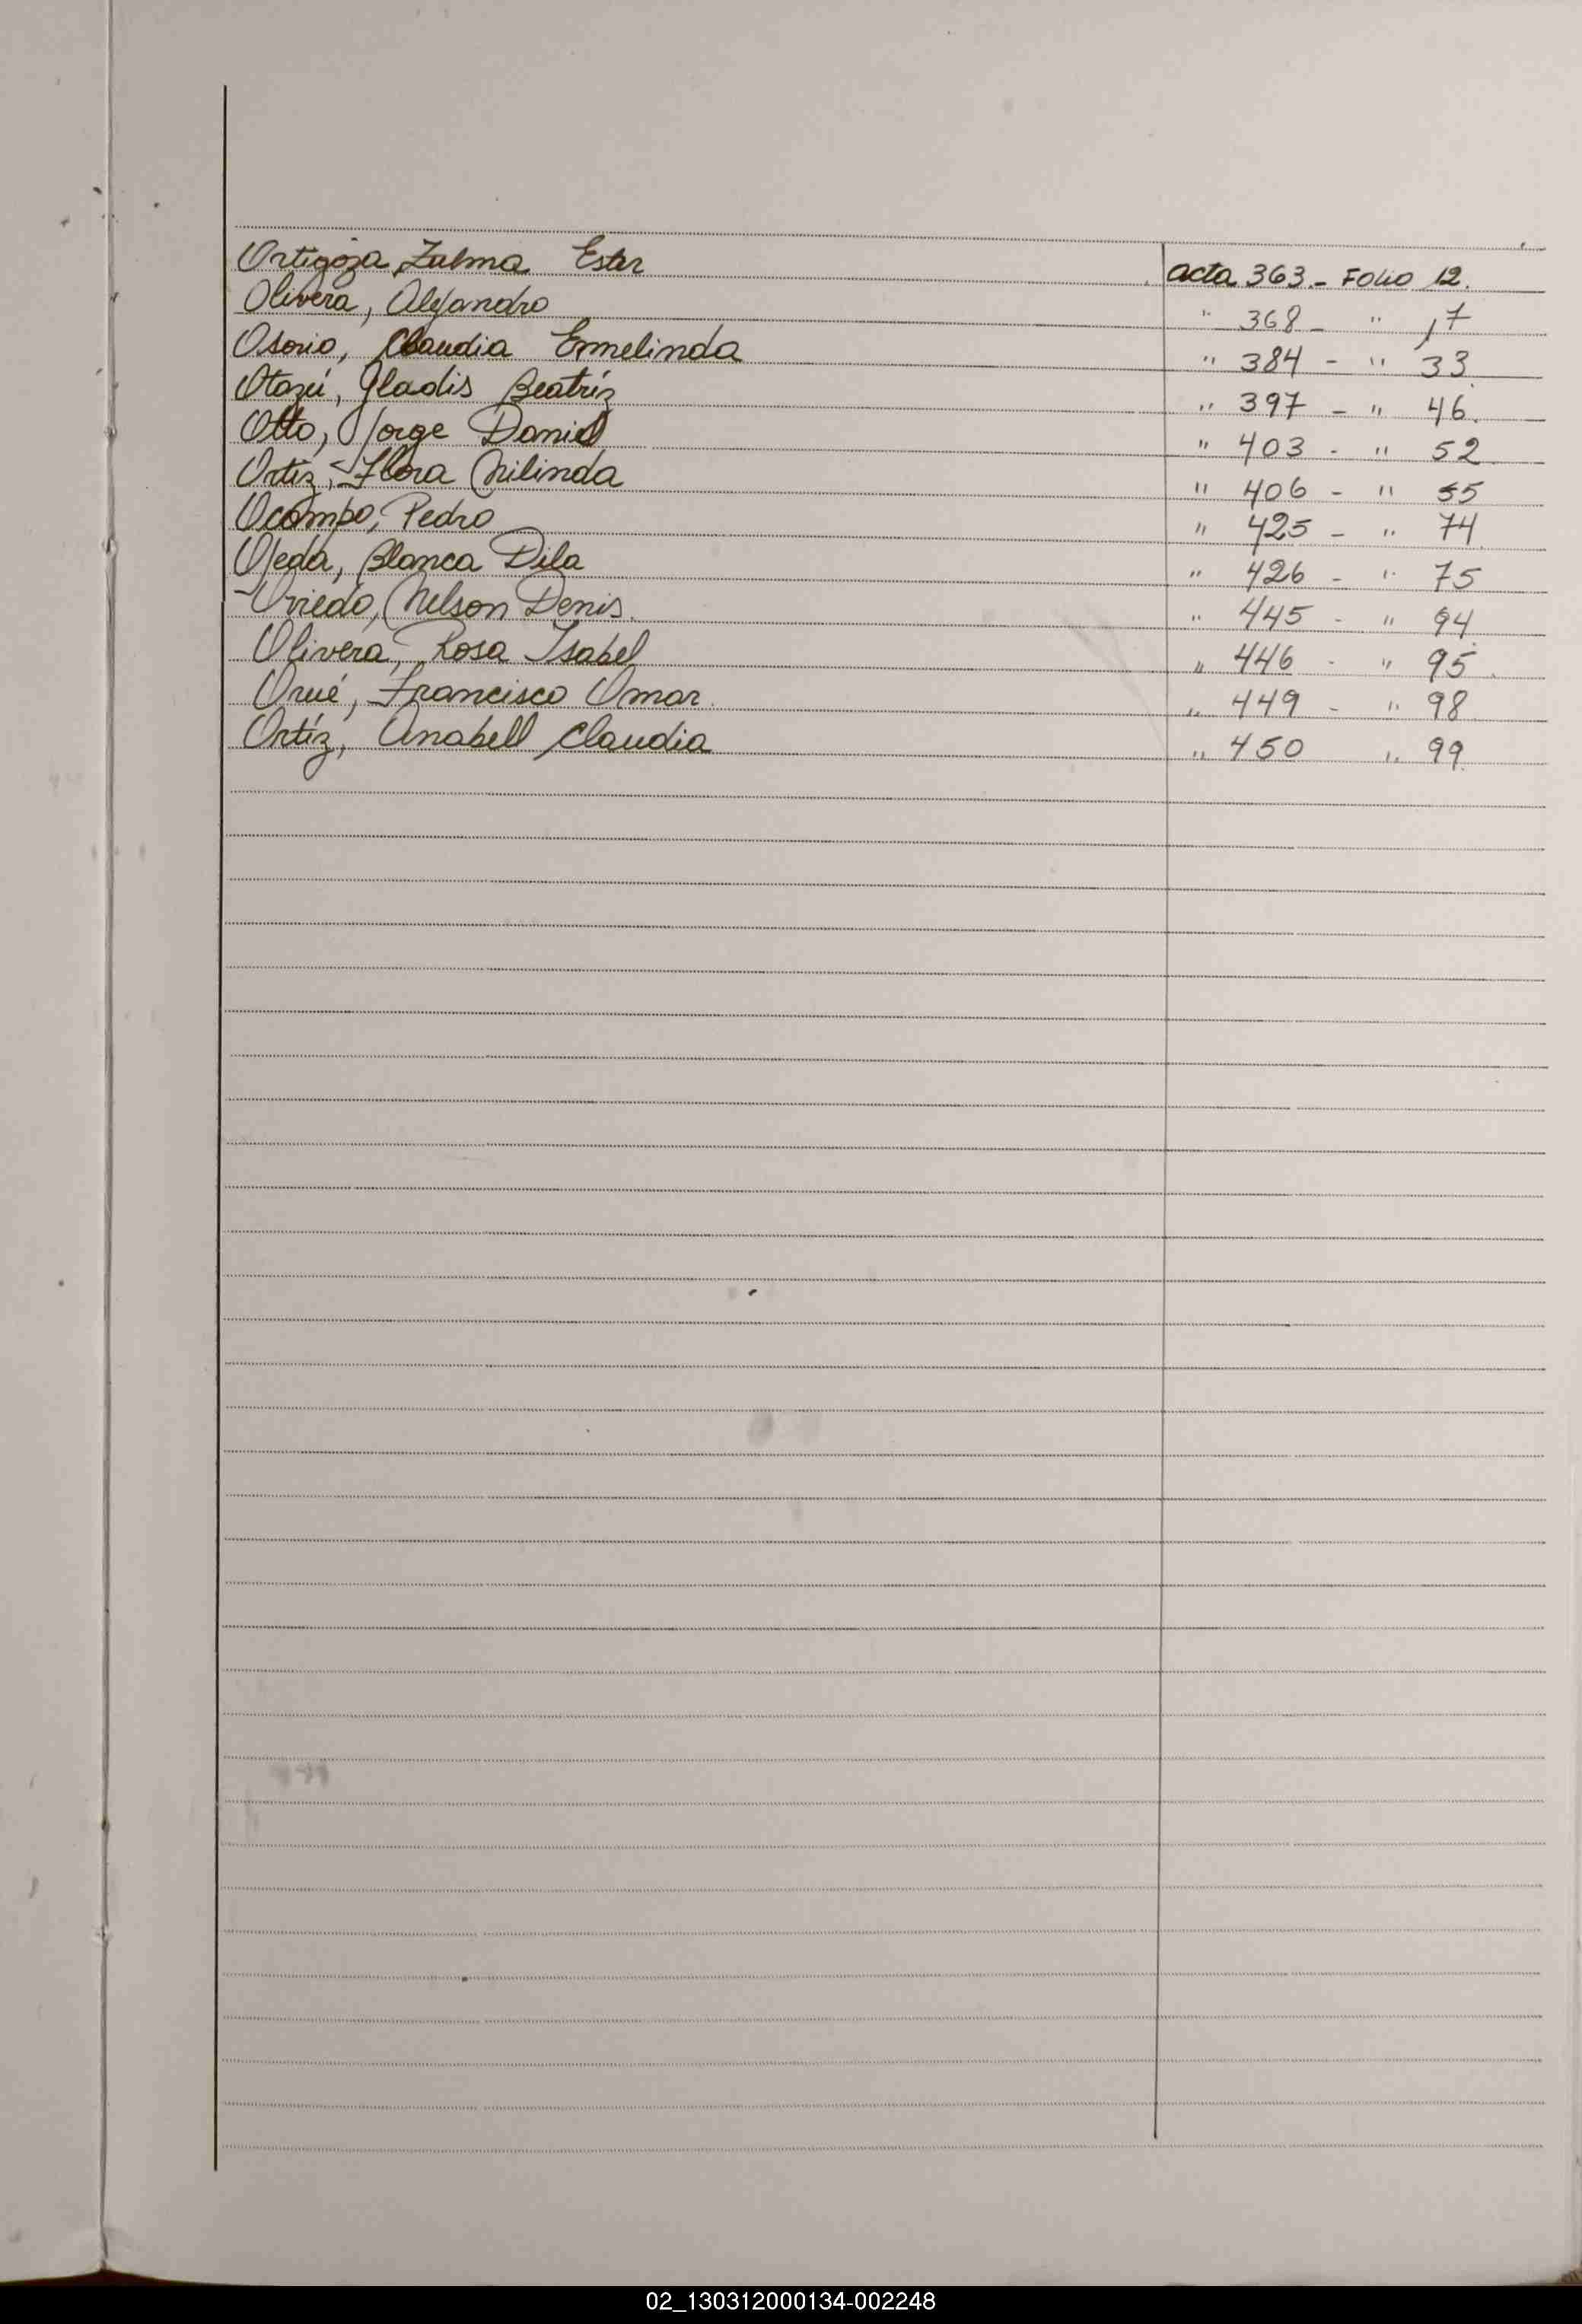 Ortigoza Zulma Ester acta 363.- Folio 12.
Olivera, Alejandro " 368 - " 17
Osorio, Claudia Ermelinda " 384 - " 33
Otazú, Gladis Beatríz " 397 - " 46.
Otto, Jorge Daniel " 403 - " 52
Ortiz, Flora Nilinda " 406 - " 55
Ocampo, Pedro " 425 - " 74
Ojeda, Blanca Dila " 426 - " 75
Oviedo, Nelson Denis. " 445 - " 94
Olivera, Rosa Isabel " 446 - " 95.
Orué, Francisco Omar. " 449 - " 98
Ortíz, Anabell Claudia " 450 " 99.
02_130312000134-002248